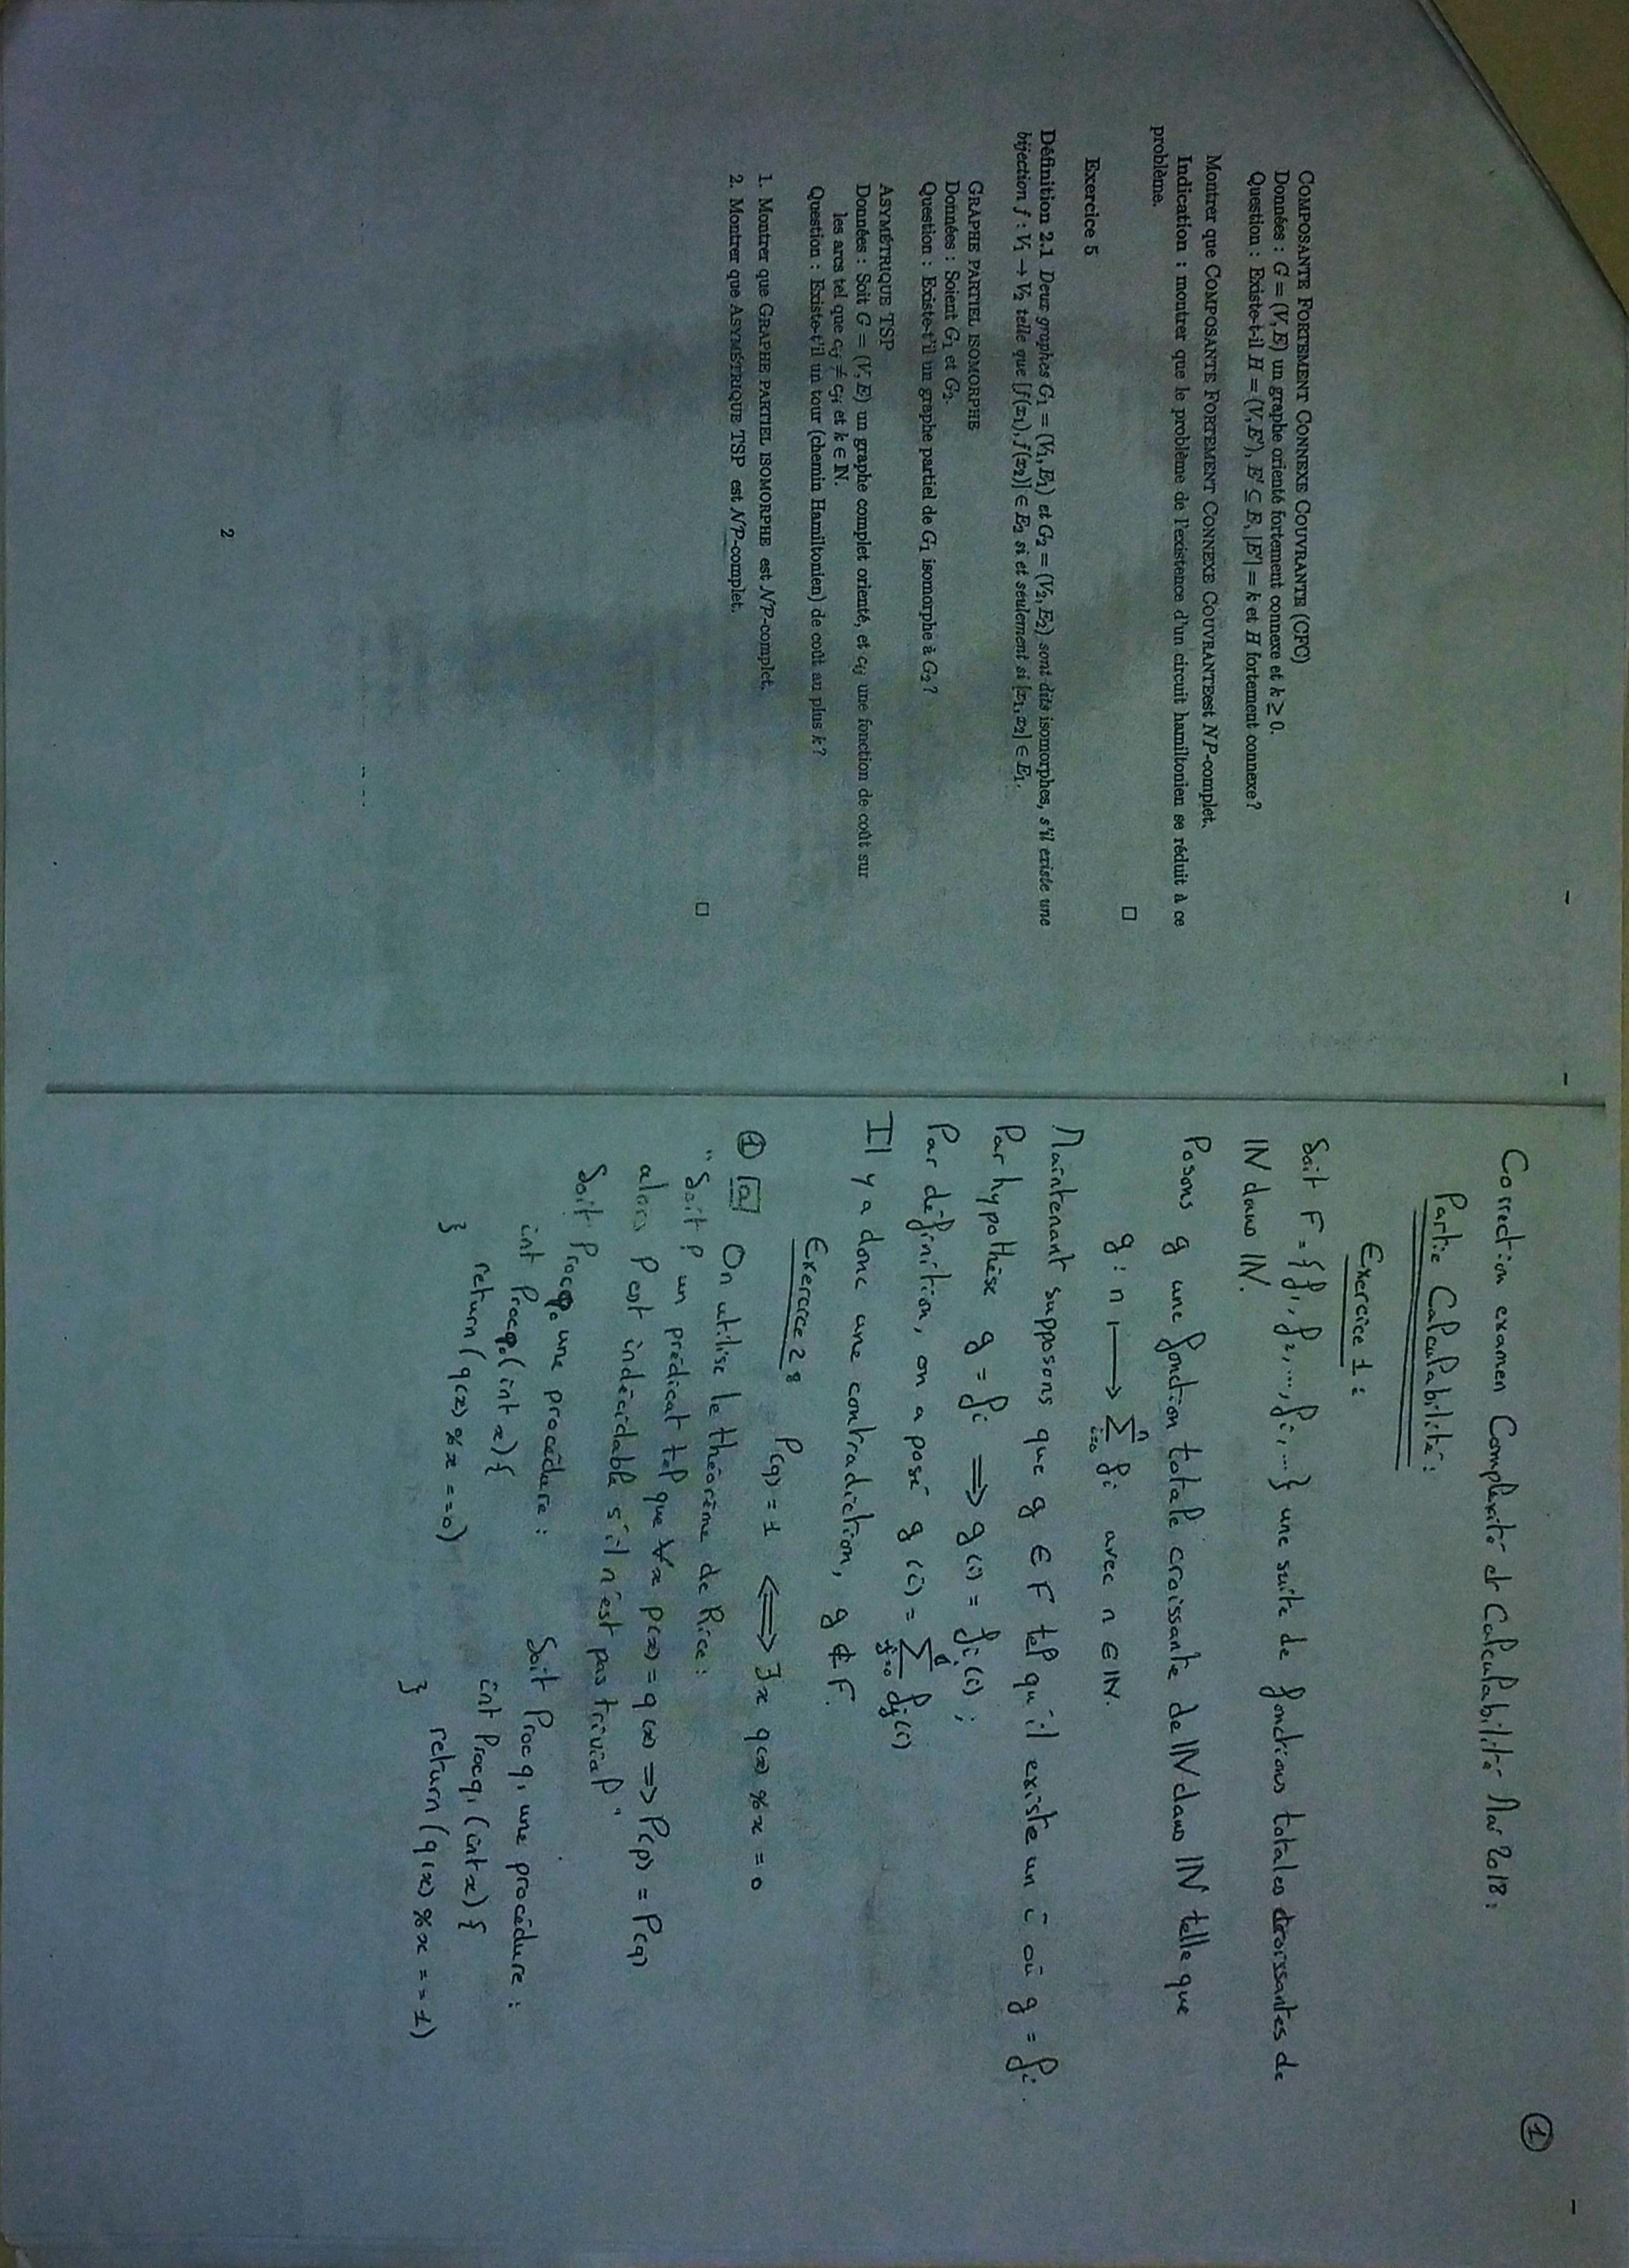 COMPOSANTE FORTEMENT CONNEXE COUVRANTE (CFC)
Données : G = (V, E) un graphe orienté fortement connexe et k ≥ 0.
Question : Existe-t-il H = (V, E'), E' ⊆ E, |E'| = k et H fortement connexe?
Montrer que COMPOSANTE FORTEMENT CONNEXE COUVRANTEest NP-complet.
Indication : montrer que le problème de l'existence d'un circuit hamiltonien se réduit à ce
problème.
□
Exercice 5
Définition 2.1 Deux graphes G₁ = (V₁, E₁) et G₂ = (V₂, E₂) sont dits isomorphes, s'il existe une
bijection f : V₁ → V₂ telle que [f(x₁), f(x₂)] ∈ E₂ si et seulement si [x₁, x₂] ∈ E₁.
GRAPHE PARTIEL ISOMORPHE
Données : Soient G₁ et G₂.
Question : Existe-t'il un graphe partiel de G₁ isomorphe à G₂?
ASYMÉTRIQUE TSP
Données : Soit G = (V, E) un graphe complet orienté, et cᵢⱼ une fonction de coût sur
les arcs tel que cᵢⱼ ≠ cⱼᵢ et k ∈ ℕ.
Question : Existe-t'il un tour (chemin Hamiltonien) de coût au plus k?
1. Montrer que GRAPHE PARTIEL ISOMORPHE est NP-complet.
2. Montrer que ASYMÉTRIQUE TSP est NP-complet.
□
2
①
Correction examen Complexité et Calculabilité Mai 2018 :
Partie Calculabilité :
Exercice 1 :
Soit F = {f₁, f₂, ..., fᵢ, ...} une suite de fonctions totales croissantes de
ℕ dans ℕ.
Posons g une fonction totale croissante de ℕ dans ℕ telle que
g : n ⟼ Σⁿᵢ₌₀ fᵢ avec n ∈ ℕ.
Maintenant supposons que g ∈ F tel qu'il existe un i où g = fᵢ.
Par hypothèse g = fᵢ ⟹ g(i) = fᵢ(i) ;
Par définition, on a posé g(i) = Σ fⱼ(i)
Il y a donc une contradiction, g ∉ F.
Exercice 2 :
① [a] P(q) = 1 ⟺ ∃x q(x) % x = 0
On utilise le théorème de Rice :
"Soit P un prédicat tel que ∀x p(x) = q(x) ⟹ P(p) = P(q)
alors P est indécidable s'il n'est pas trivial"
Soit Procq₀ une procédure :
int Procq₀(int x) {
return (q(x) % x == 0)
}
Soit Procq₁ une procédure :
int Procq₁(int x) {
return (q(x) % x == 1)
}